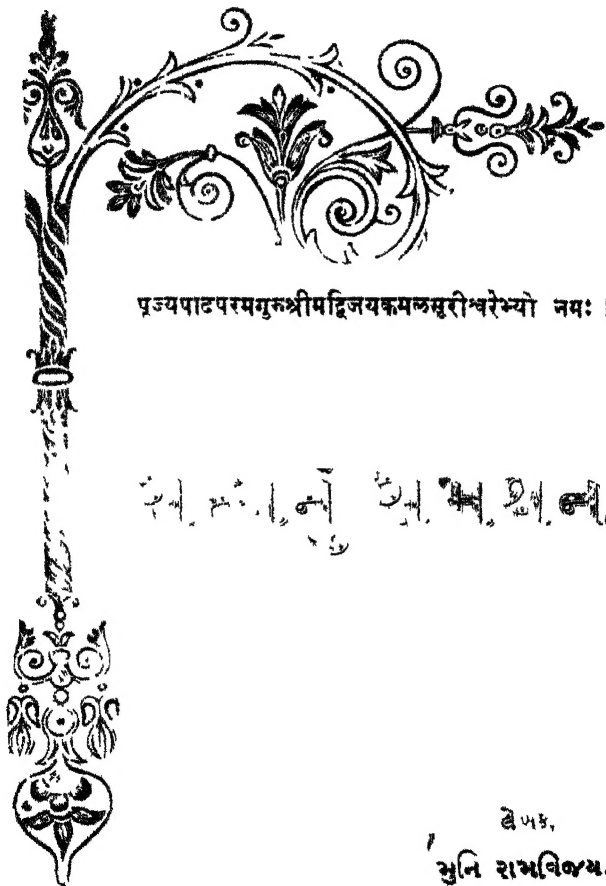 पूज्यपादपरमगुरुश्रीमद्विजयकमलसूरीश्वरेभ्यो नमः ।
લેખક,
મુનિ રામવિજય.